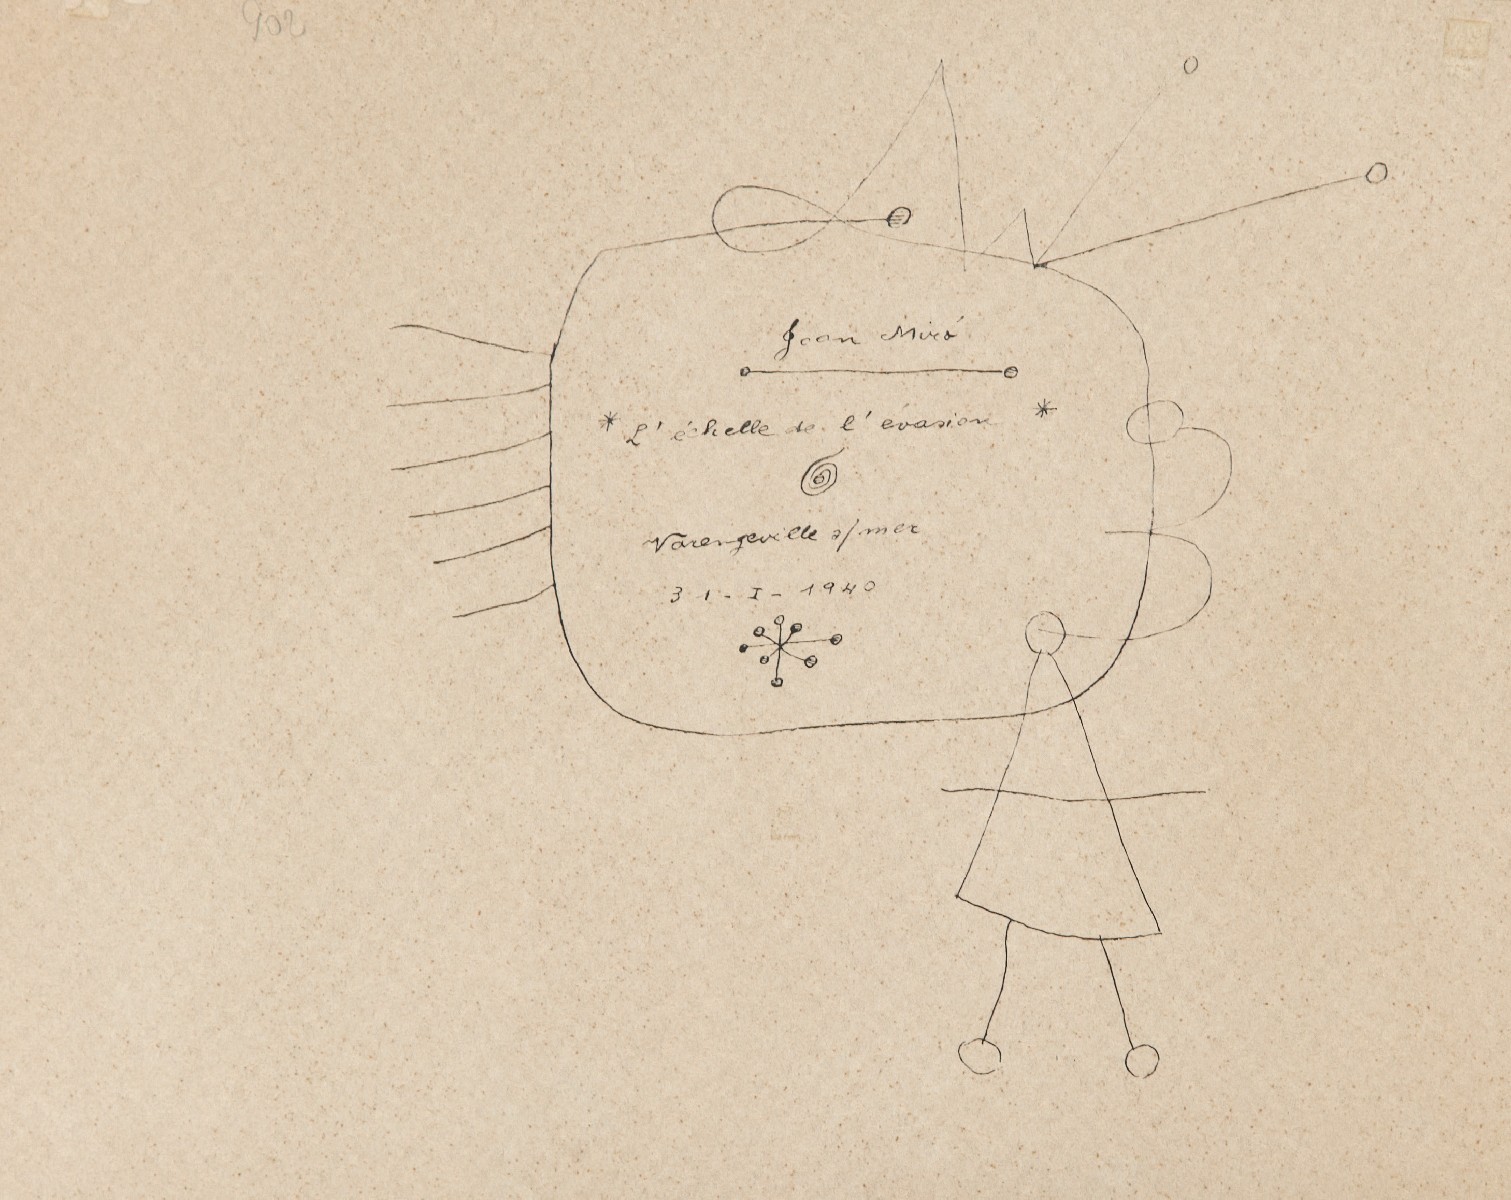 902
Joan Miró
* L'échelle de l'évasion *
Varengeville s/mer
31-I-1940